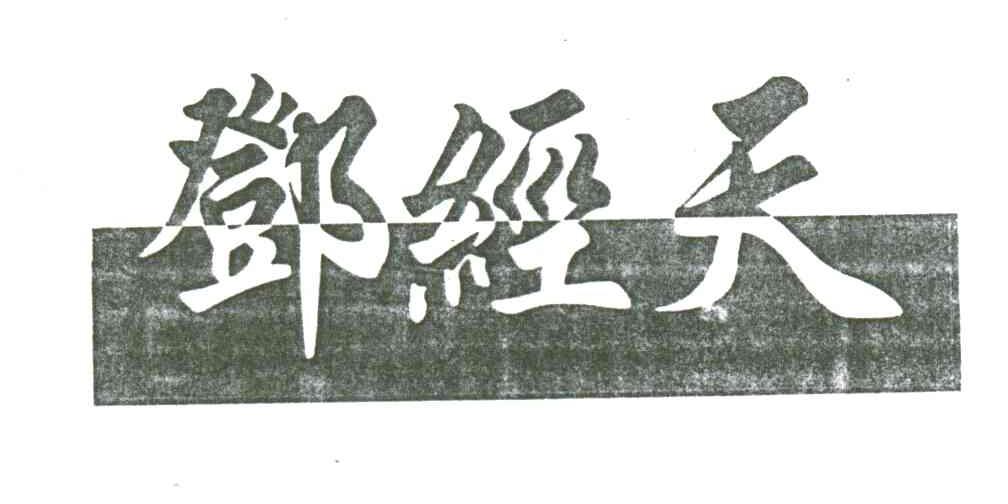 鄧經天